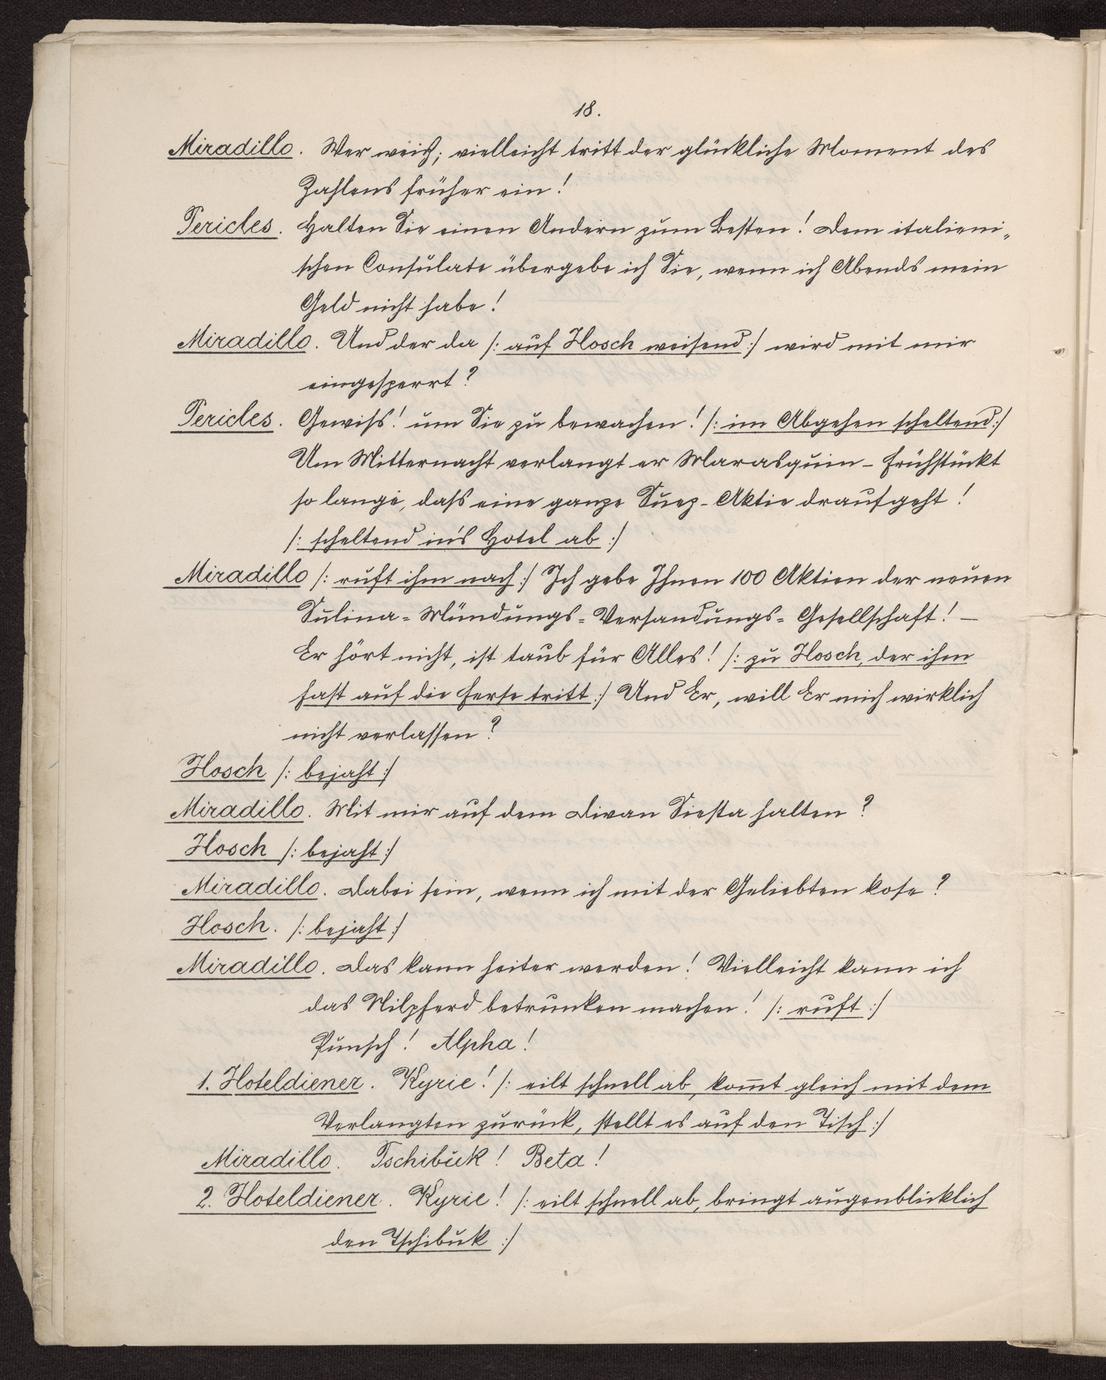 18.
Miradillo. Wer weiß; vielleicht tritt der glückliche Moment des
Zahlens früher ein!
Pericles. Halten Sie einen Andern zum Besten! Dem italieni-
schen Consulate übergebe ich Sie, wenn ich Abends mein
Geld nicht habe!
Miradillo. Und der da /: auf Hosch weisend :/ wird mit mir
eingesperrt?
Pericles. Gewiss! um Sie zu bewachen! /: im Abgehen scheltend :/
Um Mitternacht verlangt er Marasquin - frühstückt
so lange, dass eine ganze Suez-Aktie draufgeht!
/: scheltend in's Hotel ab :/
Miradillo /: ruft ihm nach :/ Ich gebe Ihnen 100 Aktien der neuen
Sulina-Mündungs-Versandungs-Gesellschaft! —
Er hört nicht, ist taub für Alles! /: zu Hosch, der ihm
fast auf die Ferse tritt :/ Und Er, will Er mich wirklich
nicht verlassen?
Hosch /: bejaht :/
Miradillo. Mit mir auf dem Divan Siesta halten?
Hosch /: bejaht :/
Miradillo. Dabei sein, wenn ich mit der Geliebten kose?
Hosch. /: bejaht :/
Miradillo. Das kann heiter werden! Vielleicht kann ich
das Nilpferd betrunken machen! /: ruft :/
Punsch! Alpha!
1. Hoteldiener. Kyrie! /: eilt schnell ab, kom̄t gleich mit dem
Verlangten zurück, stellt es auf den Tisch :/
Miradillo. Tschibuk! Beta!
2. Hoteldiener. Kyrie! /: eilt schnell ab, bringt augenblicklich
den Tschibuk :/